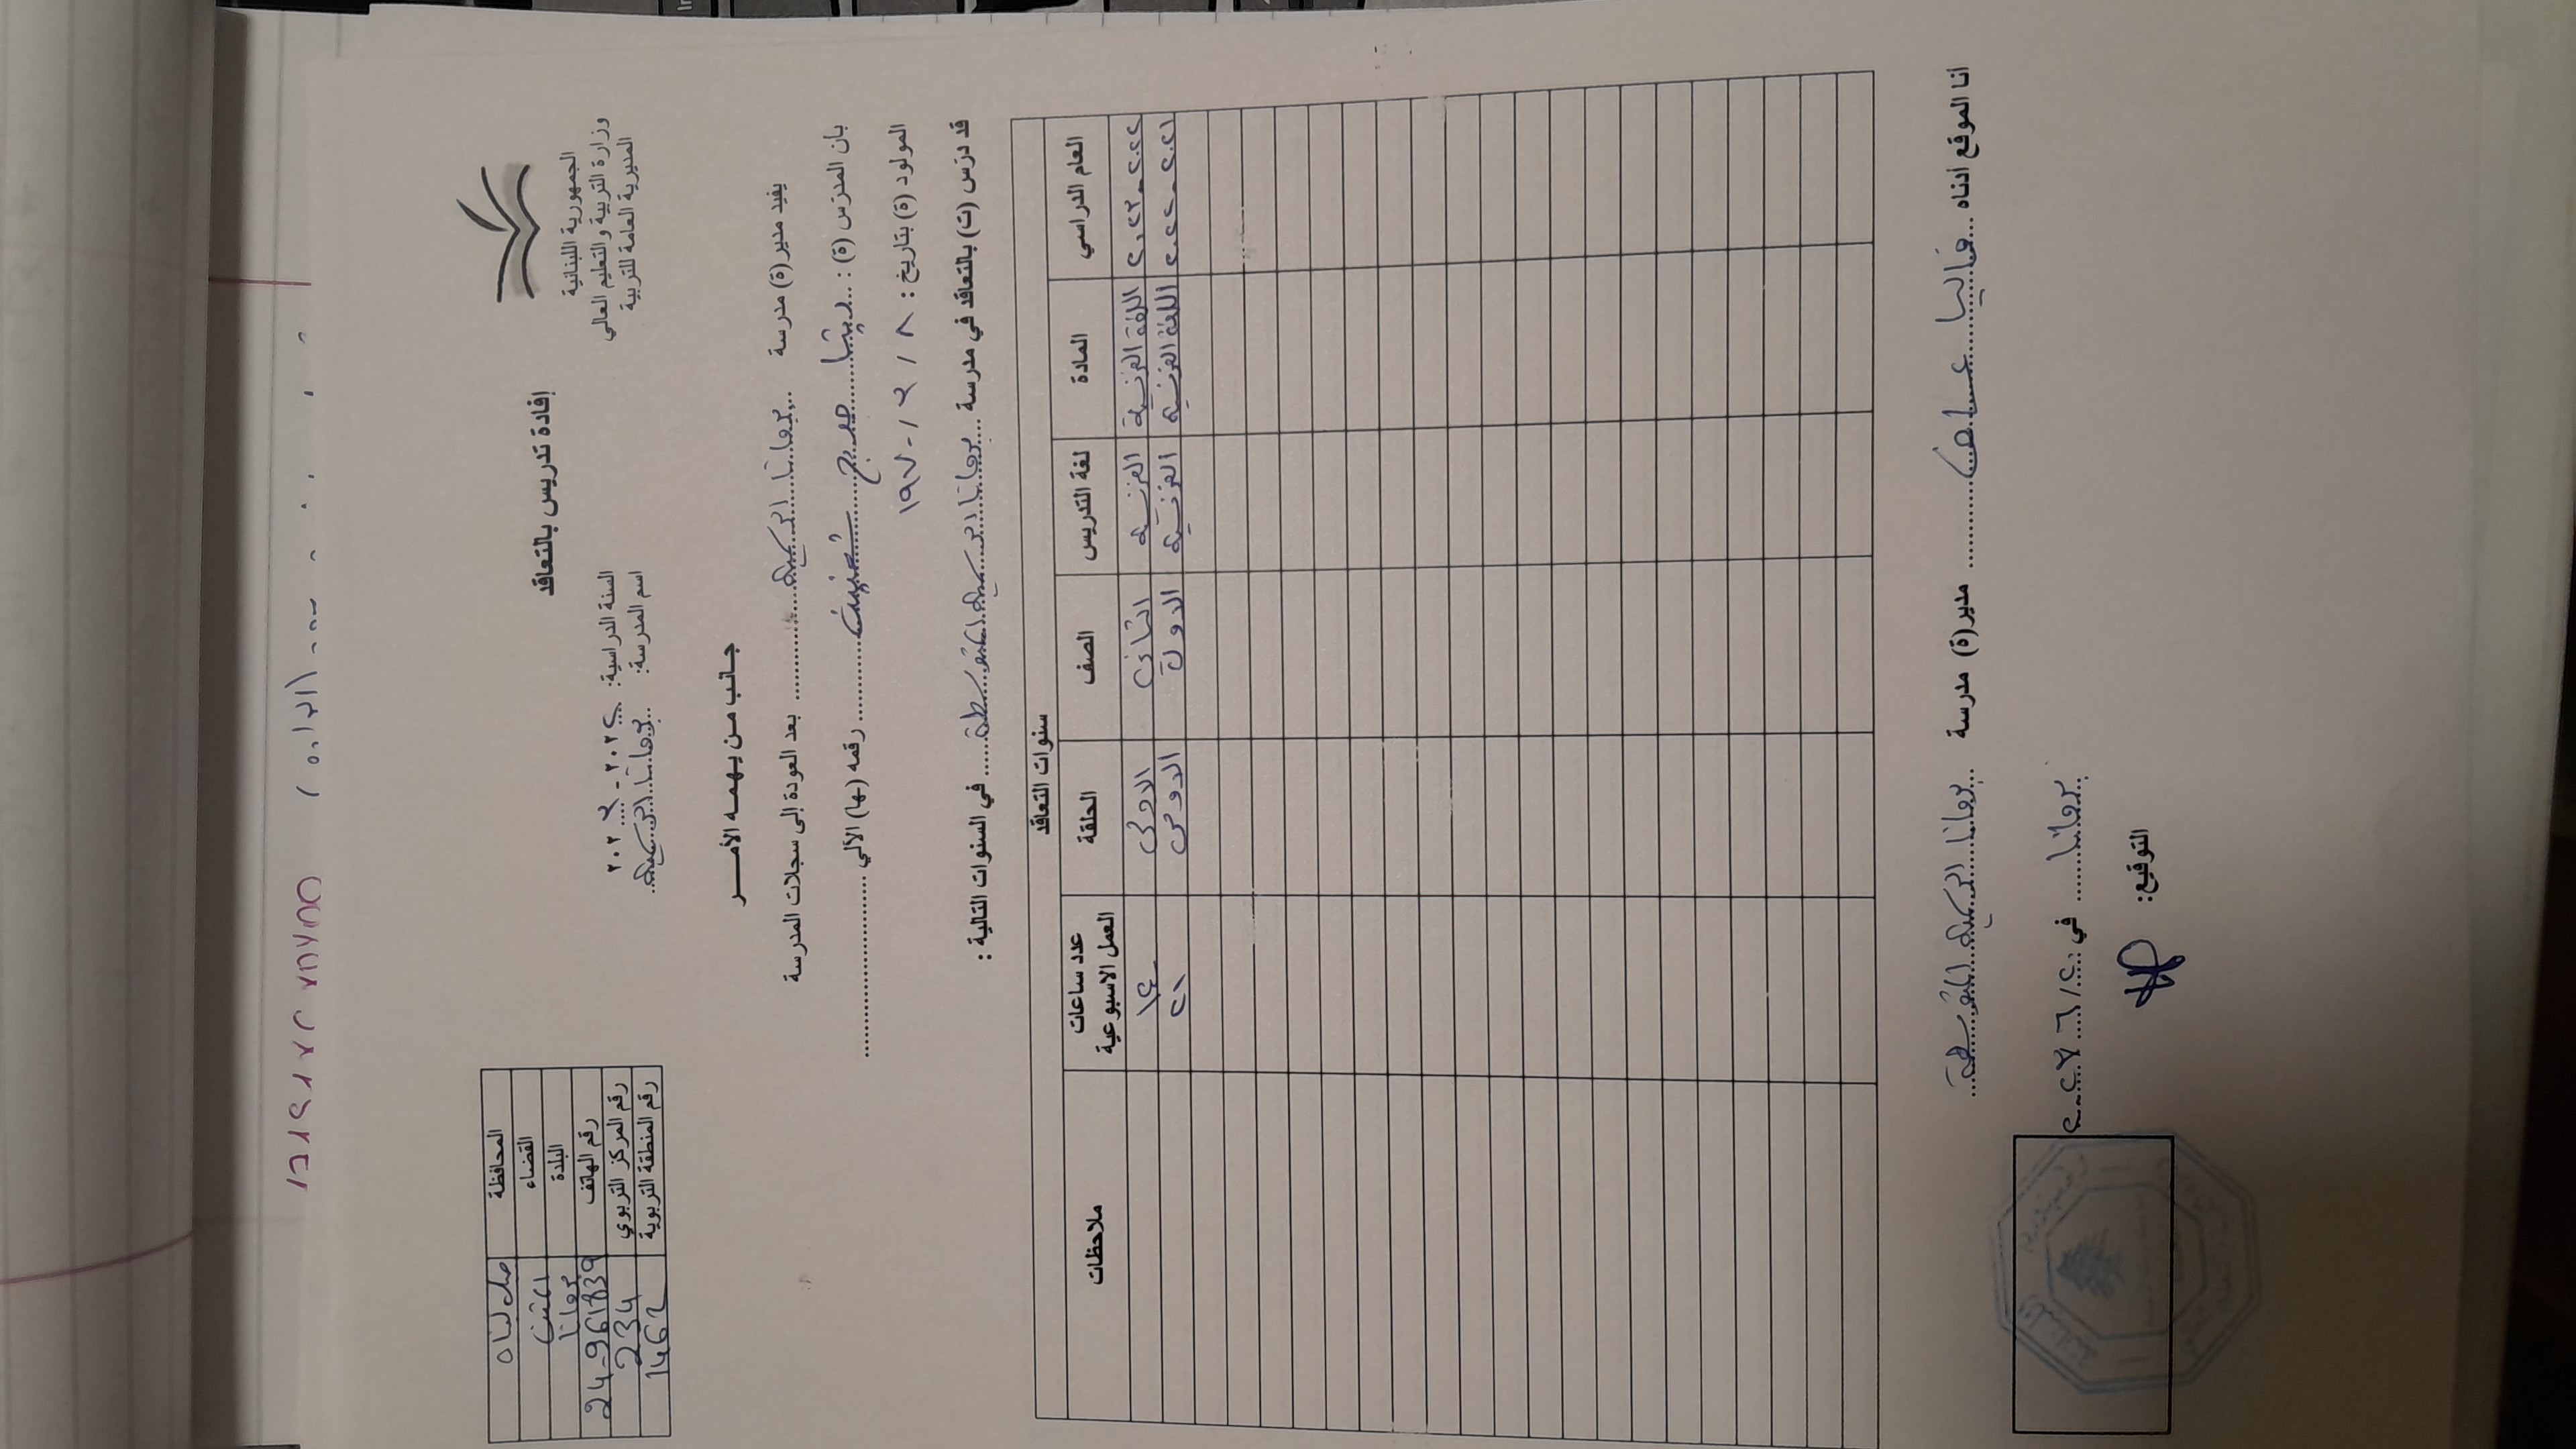 الجمهورية اللبنانية
وزارة التربية والتعليم العالي
المديرية العامة للتربية
إفادة تدريس بالتعاقد
السنة الدراسية: ٢٠٢٢ - ٢٠٢٣
اسم المدرسة: برمانا الرسمية
المحافظة جبل لبنان
القضاء المتن
البلدة برمانا
رقم الهاتف 24-961839
رقم المركز التربوي 234
رقم المنطقة التربوية 1462
جانب من يهمه الأمر
يفيد مدير (ة) مدرسة برمانا الرسمية بعد العودة إلى سجلات المدرسة
بان المدرّس (ة) : ريتا شعنين رقمه (ها) الآلي
المولود (ة) بتاريخ : ٨ / ٣ / ١٩٧٠
قد درّس (ت) بالتعاقد في مدرسة برمانا الرسمية المتوسطة في السنوات التالية :
سنوات التعاقد
العام الدراسي المادة لغة التدريس الصف الحلقة عدد ساعات العمل الاسبوعية ملاحظات
٢٠٢٢-٢٠٢٣ اللغة الفرنسية الفرنسية الثاني الاولى ١٤
٢٠٢١-٢٠٢٢ اللغة الفرنسية الفرنسية الاول الاولى ٢١
أنا الموقع أدناه داليا مدير (ة) مدرسة برمانا الرسمية المتوسطة
برمانا في ٢٠٢٣/٦/٤٠
التوقيع: